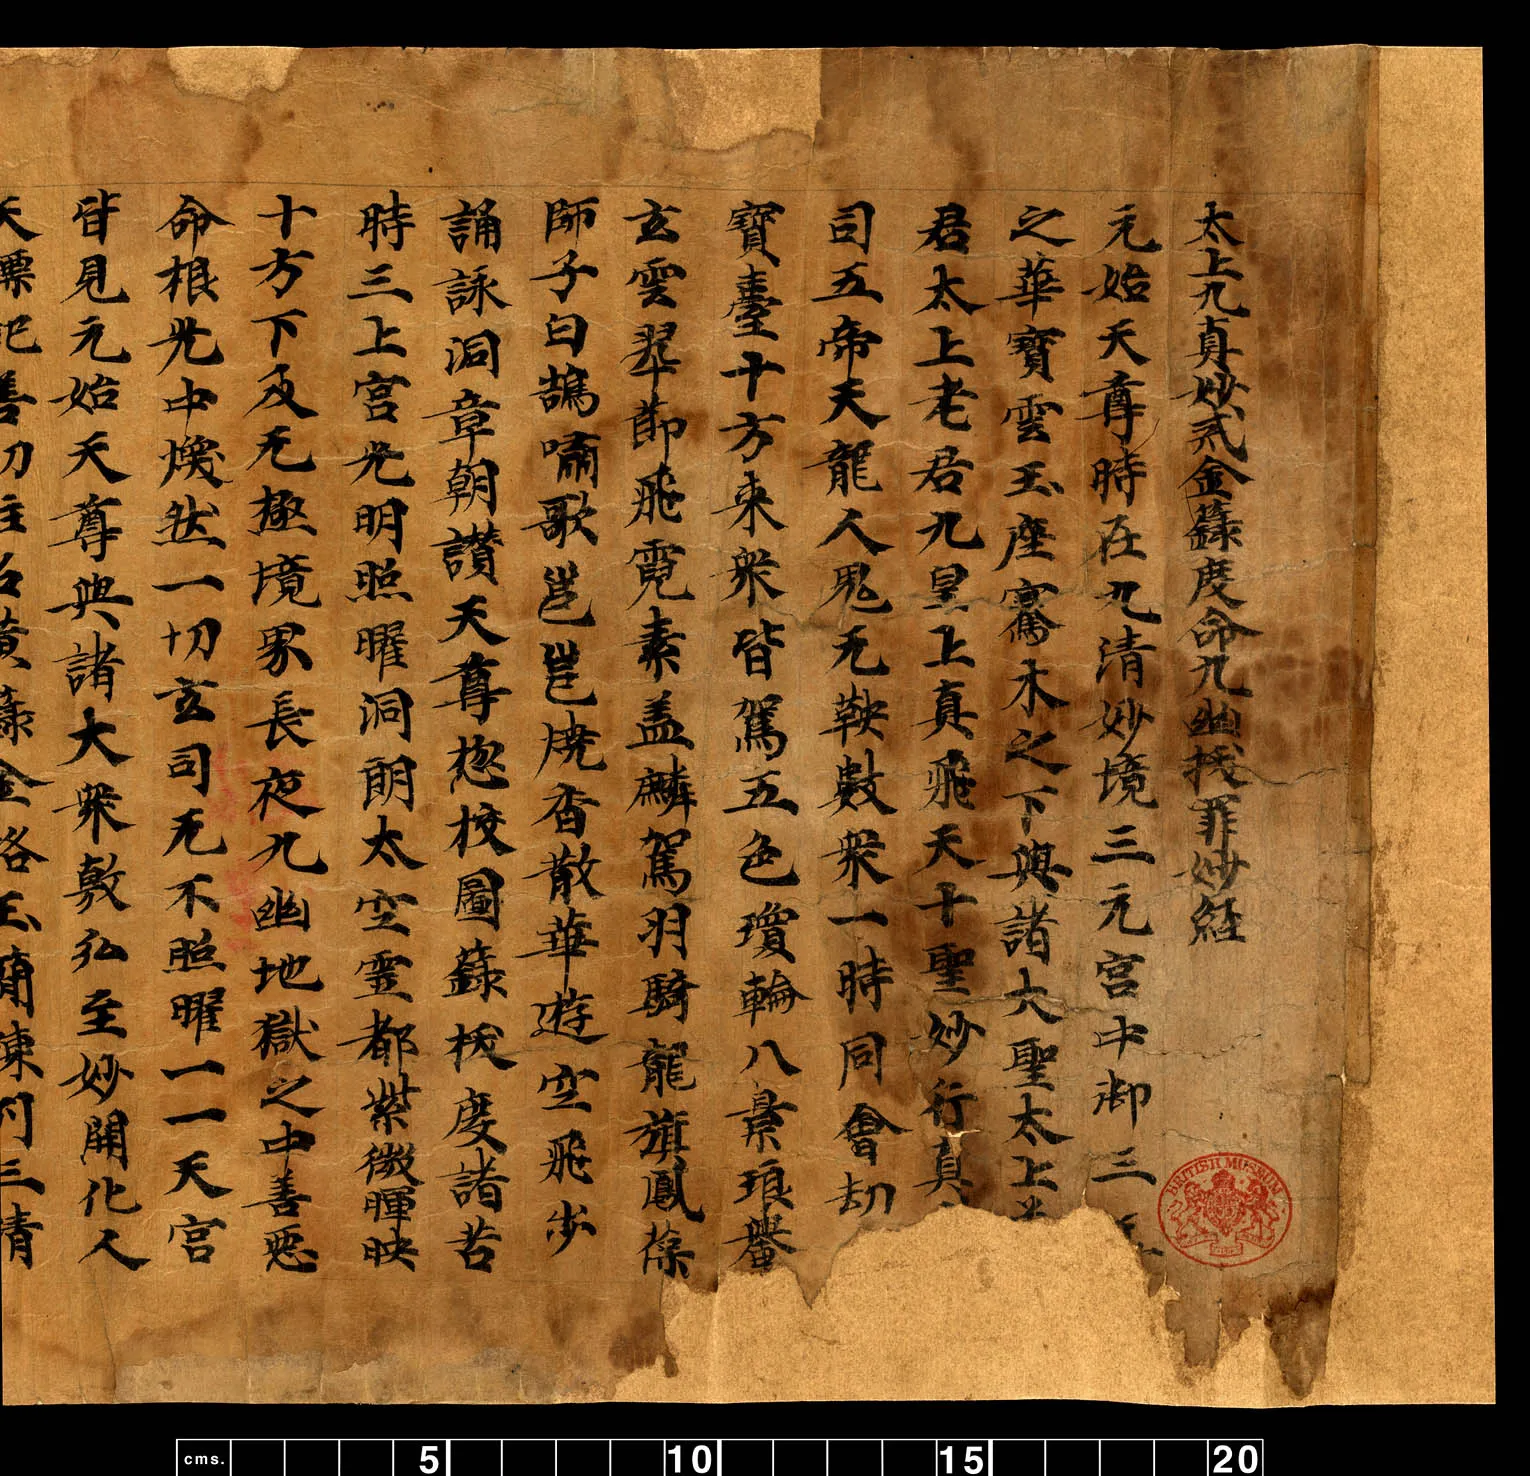 太上九真妙戒金籙度命九幽拔罪妙經
元始天尊時在九清妙境三元宮中御三
之華寶雲玉座騫木之下與諸大聖太上
君太上老君九皇上真飛天十聖妙行真
司五帝天龍人鬼无鞅數衆一時同會劫
寶臺十方來衆皆駕五色瓊輪八景琅轝
玄雲翠節飛霓素盖麟駕羽騎龍旗鳳葆
師子白鵠嘯歌邕邕燒香散華遊空飛步
誦詠洞章朝讃天尊惣校圖籙拔度諸苦
時三上宮光明照曜洞朗太空靈都紫微暉映
十方下及无極境界長夜九幽地獄之中善惡
命根光中煥然一切玄司无不照曜一一天宮
皆見元始天尊與諸大衆敷弘至妙開化人
天 記善功 名黃籙金格玉簡 三清
BRITISH MUSEUM
cms. 5 10 15 20